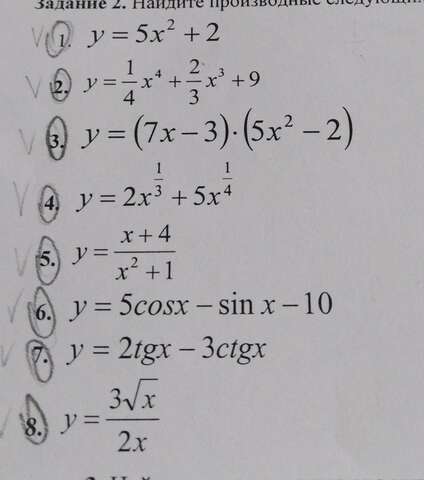 Задание 2. Найдите производные
1. y = 5x² + 2
2. y = 1/4 x⁴ + 2/3 x³ + 9
3. y = (7x − 3)·(5x² − 2)
4. y = 2x^(1/3) + 5x^(1/4)
5. y = (x + 4)/(x² + 1)
6. y = 5cosx − sin x − 10
7. y = 2tgx − 3ctgx
8. y = 3√x/2x